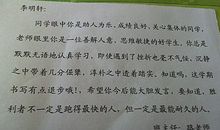 李明轩:
同学眼中你是助人为乐、成绩良好、关心集体的同学,
老师眼里你是一位善解人意、思维敏捷的好学生,你总是
默默无语地认真学习,即使遇到了挫折也毫不气馁,沉静
之中带着几分倔犟,淳朴之中透着踏实,知道吗,这学期
书写有点退步哦!,希望你今后能大胆发言。要知道,胜
利者不一定是跑得最快的人,但一定是最能耐久的人。
班主任: